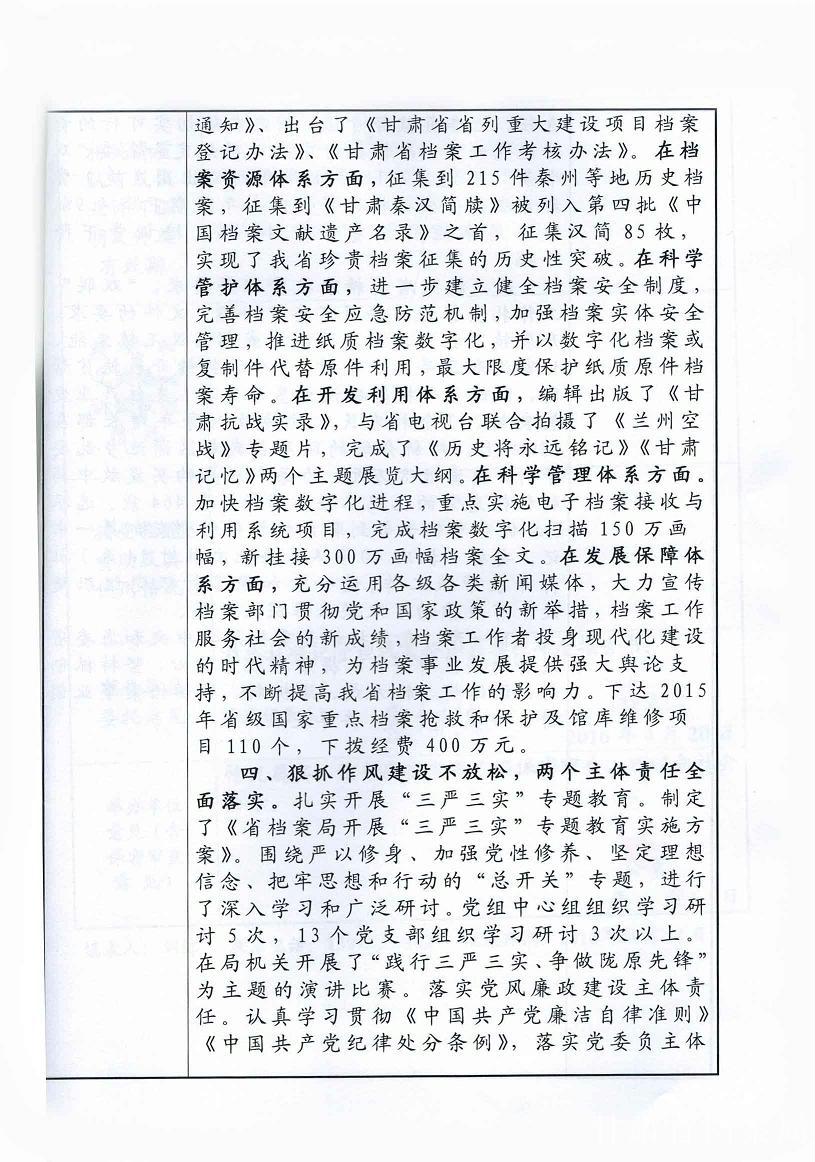 通知》、出台了《甘肃省省列重大建设项目档案
登记办法》、《甘肃省档案工作考核办法》。在档
案资源体系方面，征集到 215 件秦州等地历史档
案，征集到《甘肃秦汉简牍》被列入第四批《中
国档案文献遗产名录》之首，征集汉简 85 枚，
实现了我省珍贵档案征集的历史性突破。在科学
管护体系方面，进一步建立健全档案安全制度，
完善档案安全应急防范机制，加强档案实体安全
管理，推进纸质档案数字化，并以数字化档案或
复制件代替原件利用，最大限度保护纸质原件档
案寿命。在开发利用体系方面，编辑出版了《甘
肃抗战实录》，与省电视台联合拍摄了《兰州空
战》专题片，完成了《历史将永远铭记》《甘肃
记忆》两个主题展览大纲。在科学管理体系方面。
加快档案数字化进程，重点实施电子档案接收与
利用系统项目，完成档案数字化扫描 150 万画
幅，新挂接 300 万画幅档案全文。在发展保障体
系方面，充分运用各级各类新闻媒体，大力宣传
档案部门贯彻党和国家政策的新举措，档案工作
服务社会的新成绩，档案工作者投身现代化建设
的时代精神，为档案事业发展提供强大舆论支
持，不断提高我省档案工作的影响力。下达 2015
年省级国家重点档案抢救和保护及馆库维修项
目 110 个，下拨经费 400 万元。
四、狠抓作风建设不放松，两个主体责任全
面落实。扎实开展“三严三实”专题教育。制定
了《省档案局开展“三严三实”专题教育实施方
案》。围绕严以修身、加强党性修养、坚定理想
信念、把牢思想和行动的“总开关”专题，进行
了深入学习和广泛研讨。党组中心组组织学习研
讨 5 次，13 个党支部组织学习研讨 3 次以上。
在局机关开展了“践行三严三实、争做陇原先锋”
为主题的演讲比赛。落实党风廉政建设主体责
任。认真学习贯彻《中国共产党廉洁自律准则》
《中国共产党纪律处分条例》，落实党委负主体